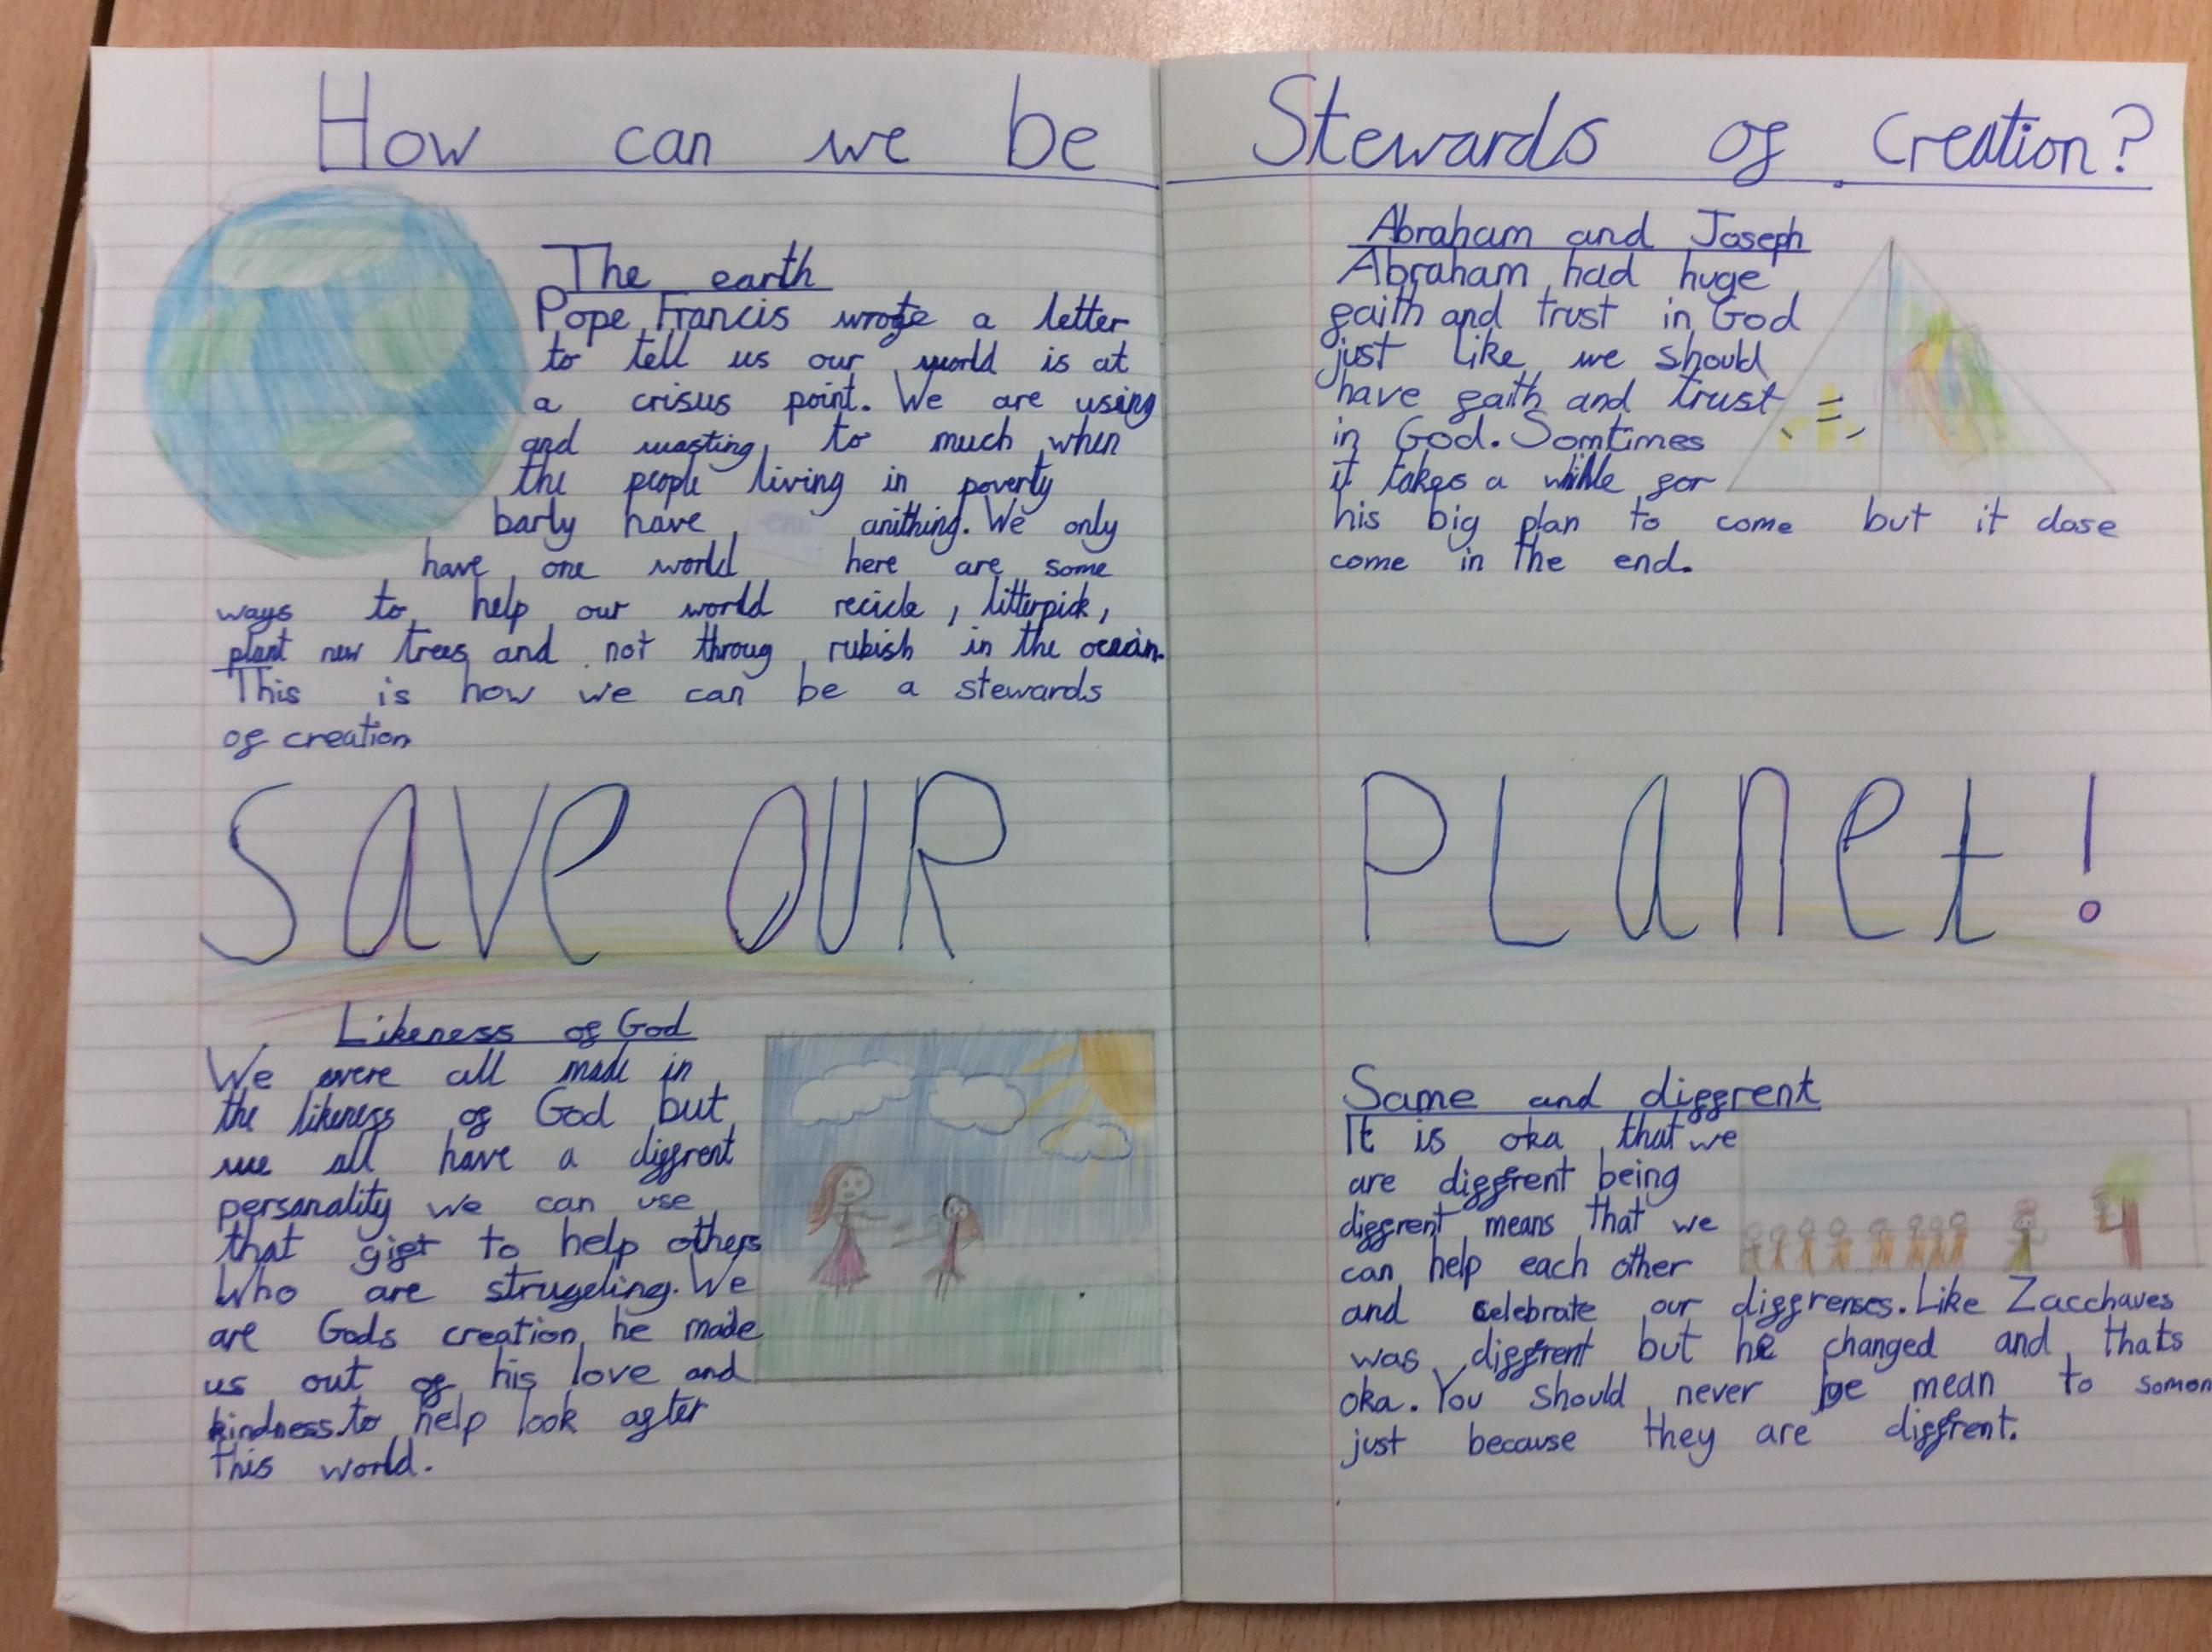 How can we be Stewards of creation?
The earth
Pope Francis wrote a letter
to tell us our world is at
a crisus point. We are using
and wasting to much when
the people living in poverty
barly have anithing. We only
have one world here are some
ways to help our world recicle, litterpick,
plant new trees and not throug rubish in the ocean.
This is how we can be a stewards
of creation
Abraham and Joseph
Abraham had huge
faith and trust in God
just like we should
have faith and trust
in God. Somtimes
it takes a while for
his big plan to come but it dose
come in the end.
Save OUR PLanet!
Likeness of God
We were all made in
the likeness of God but
we all have a diffrent
personality we can use
that gift to help others
Who are strugeling. We
are Gods creation he made
us out of his love and
kindness to help look after
this world.
Same and diffrent
It is oka that we
are diffrent being
diffrent means that we
can help each other
and celebrate our diffrenses. Like Zacchaues
was diffrent but he changed and thats
oka. You should never be mean to somon
just because they are diffrent.